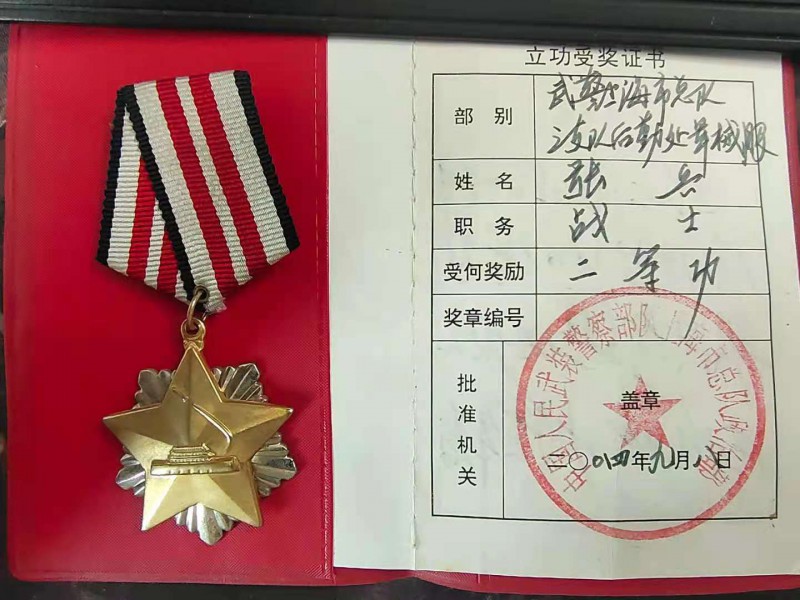 立功受奖证书
部 别 武警上海市总队
支队后勤处军械股
姓 名 张 兵
职 务 战 士
受何奖励 二等功
奖章编号
批准机关
盖章
中国人民武装警察部队上海市总队政治部
二〇 年九月 日